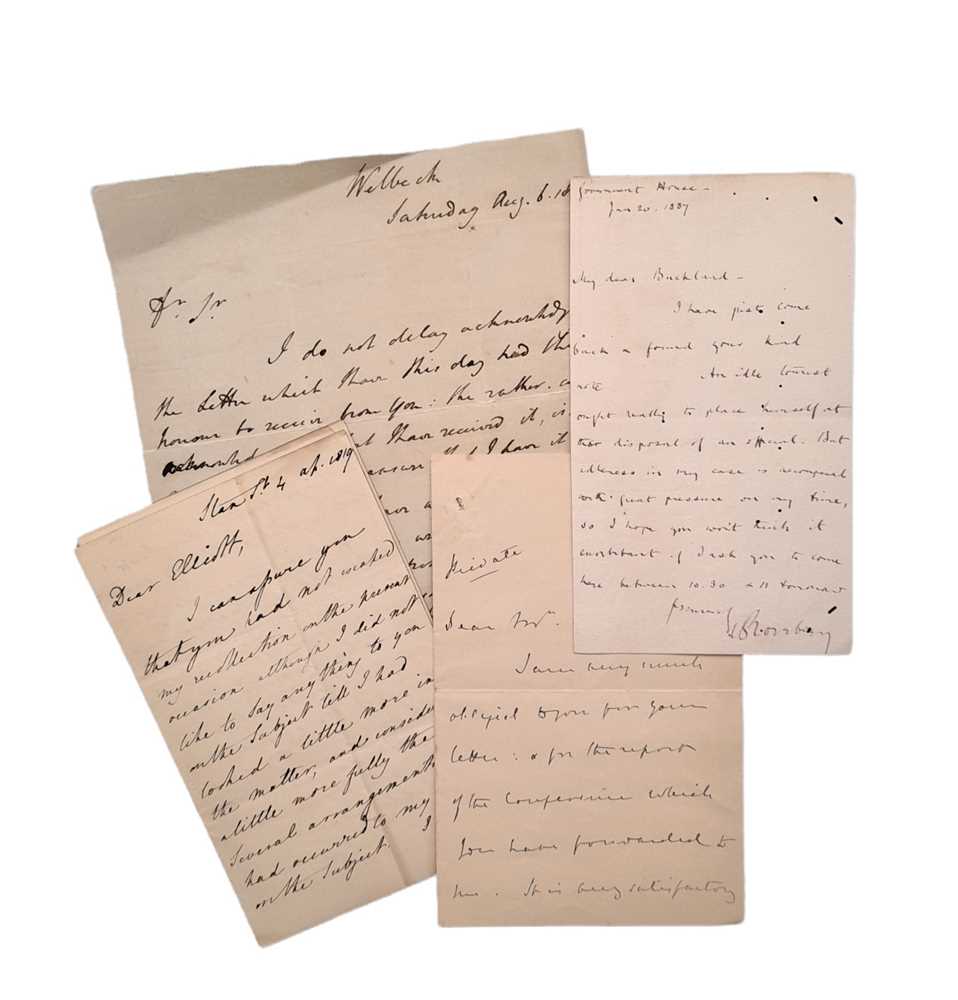 Welbeck
Saturday Aug. 6. 18
Dr. Sr.
I do not delay acknowledg
the Letter which I have this day had the
honour to receive from You: the rather.
I have received it, is
I have it
Government House -
Jan 20. 1887
My dear Buckland -
I have just come
back & found your kind
note An idle tourist
ought really to place himself at
the disposal of an official. But
idleness in my case is recompensed
with great pressure on my time,
so I hope you won't think it
if I ask you to come
here between 10.30 & 11 tomorrow
Rosebery
Stan St. 4 ap. 1819
Dear Elliott,
I can assure you
that you had not escaped
my recollection on the present
occasion although I did not
like to say any thing to you
on the Subject till I had
looked a little more in
the matter, and conside
a little more fully the
several arrangement
had occurred to my
on the Subject. I
Private
Dear Sir.
I am very much
obliged to you for your
letter: & for the report
of the Conference which
you have forwarded to
me. It is very satisfactory